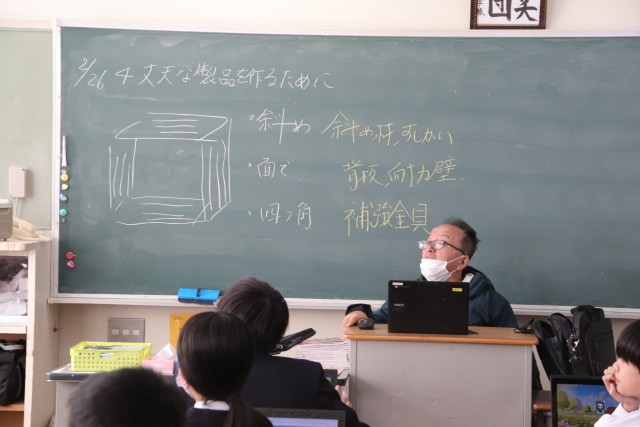 2/26 4 丈夫な製品を作るために
・斜め 斜め材,すじかい
・面で 背板,耐力壁.
・四つ角 補強金具